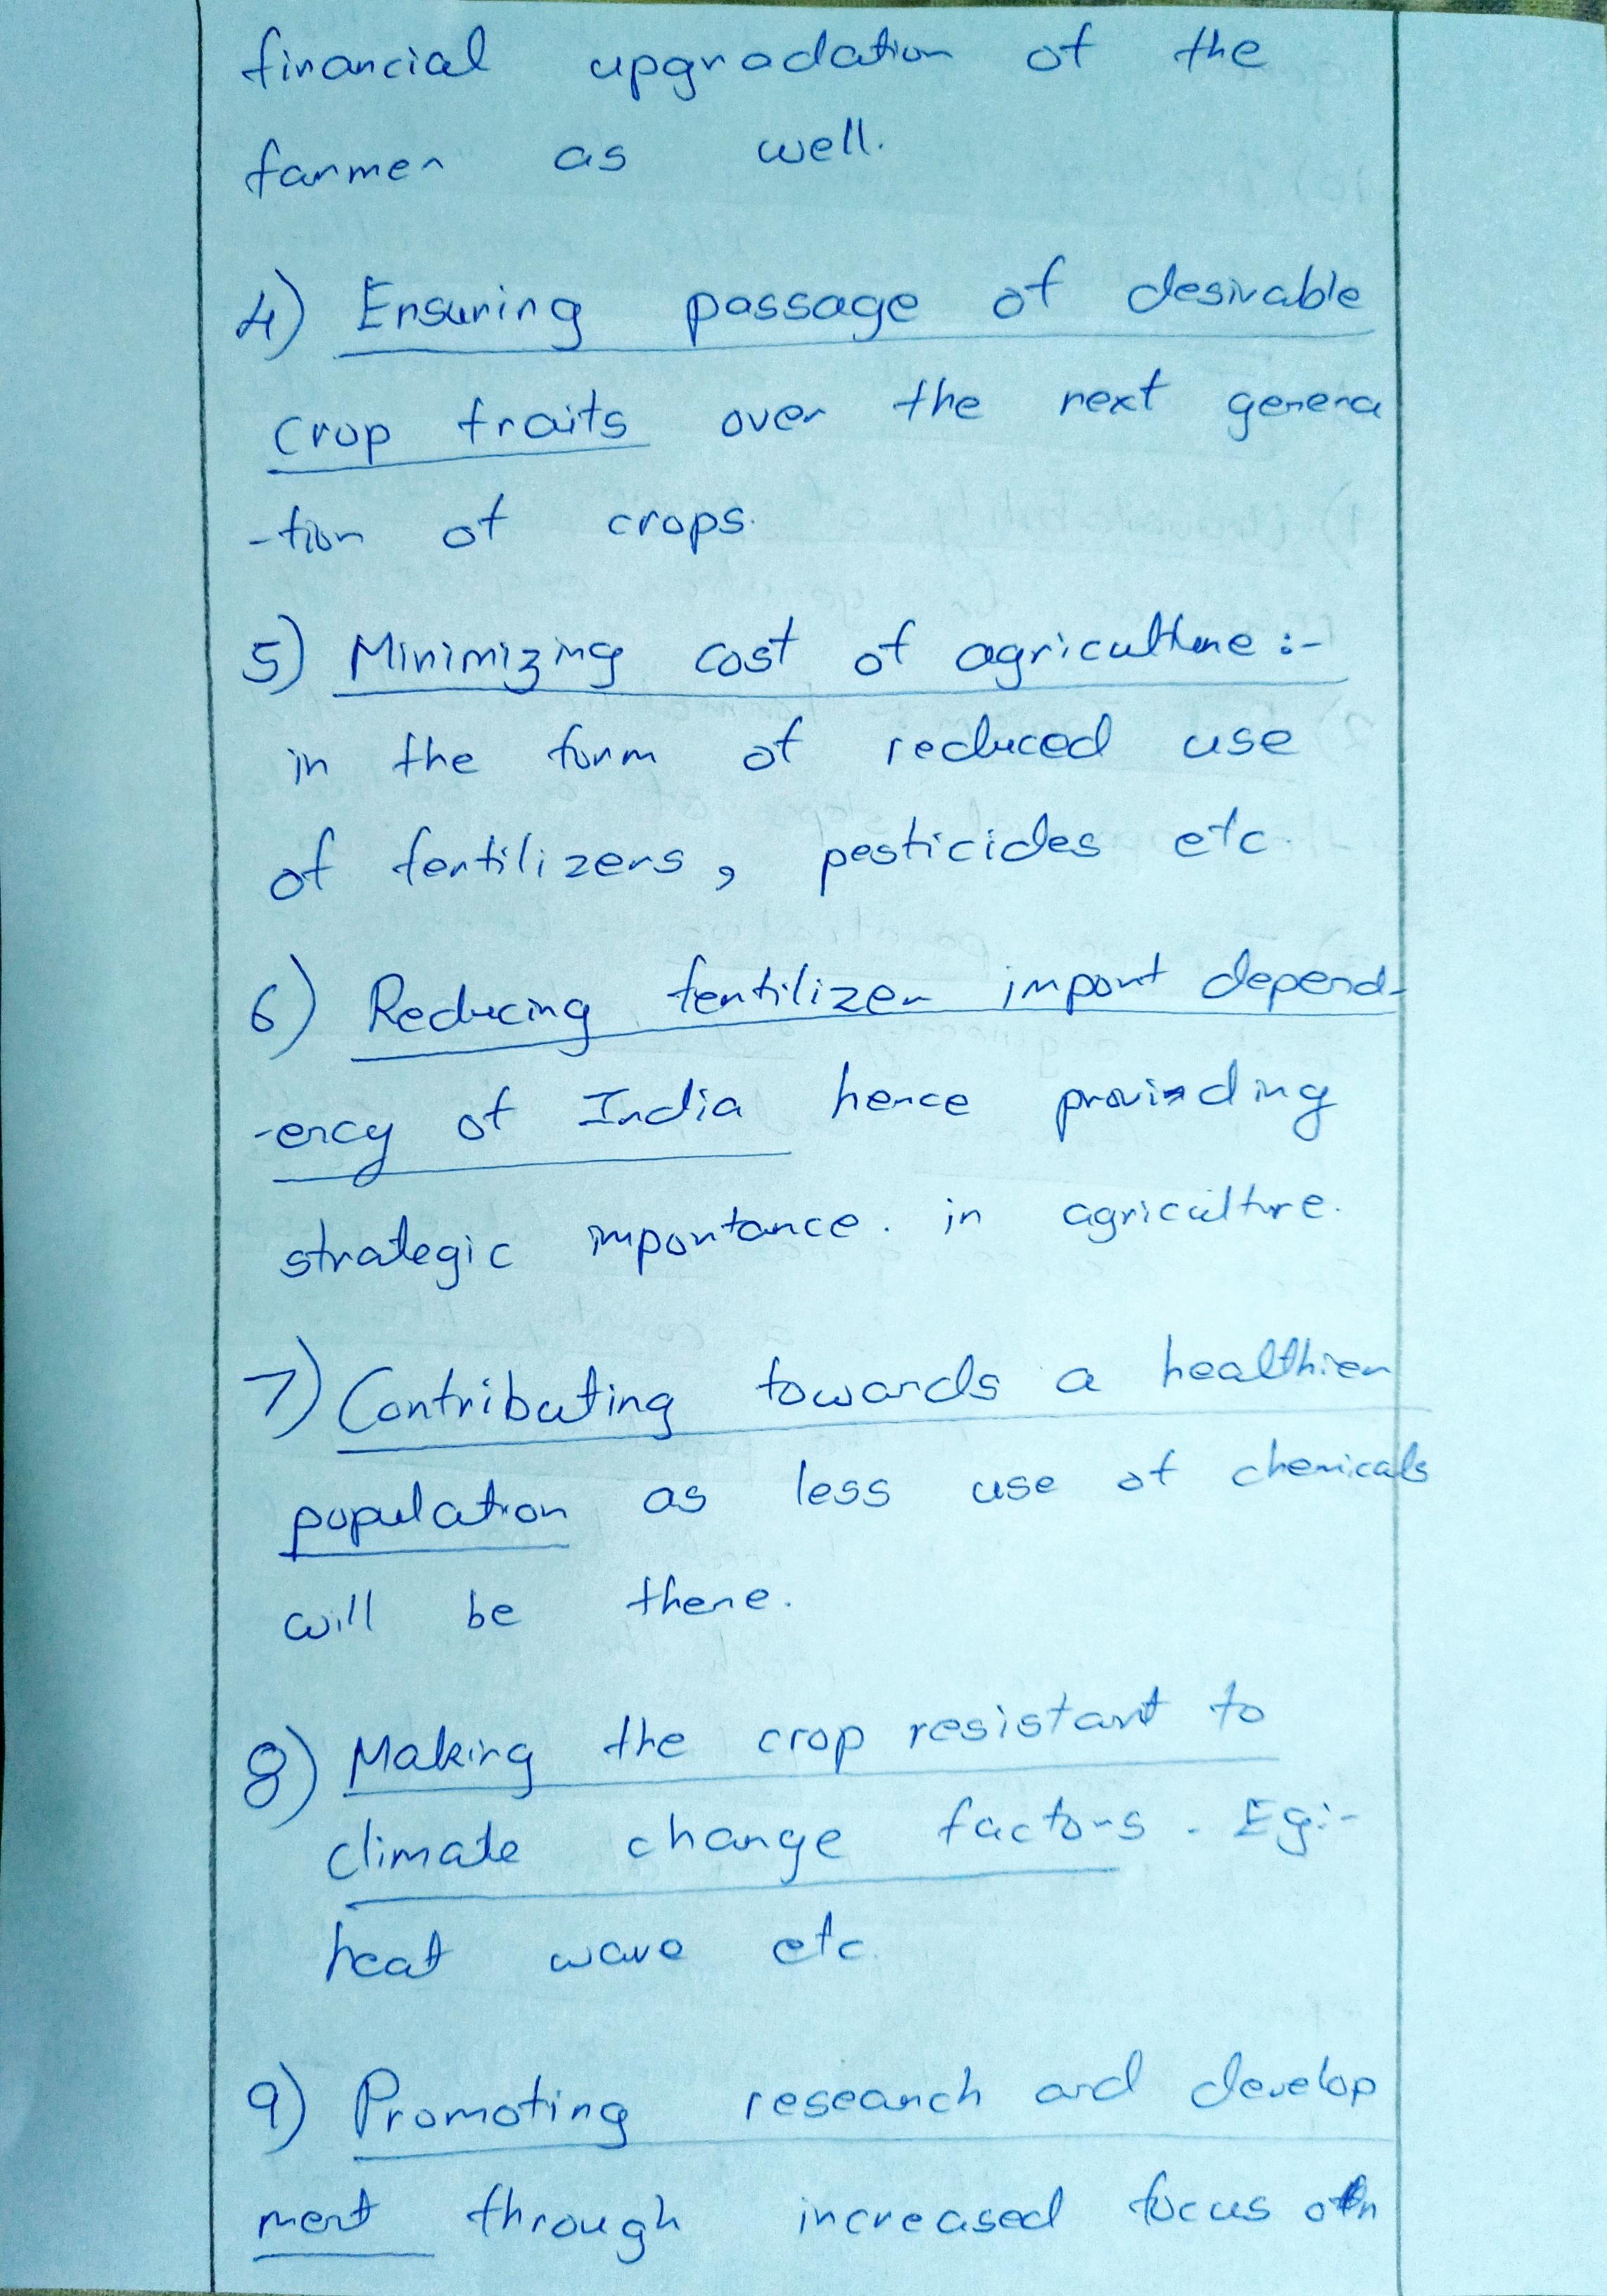 financial upgradation of the
farmer as well.
4) Ensuring passage of desirable
crop traits over the next genera
-tion of crops.
5) Minimizing cost of agriculture :-
in the form of reduced use
of fertilizers, pesticides etc.
6) Reducing fertilizer import depend-
-ency of India hence providing
strategic importance. in agriculture.
7) Contributing towards a healthier
population as less use of chemicals
will be there.
8) Making the crop resistant to
climate change factors. Eg:-
heat wave etc.
9) Promoting research and develop
ment through increased focus on